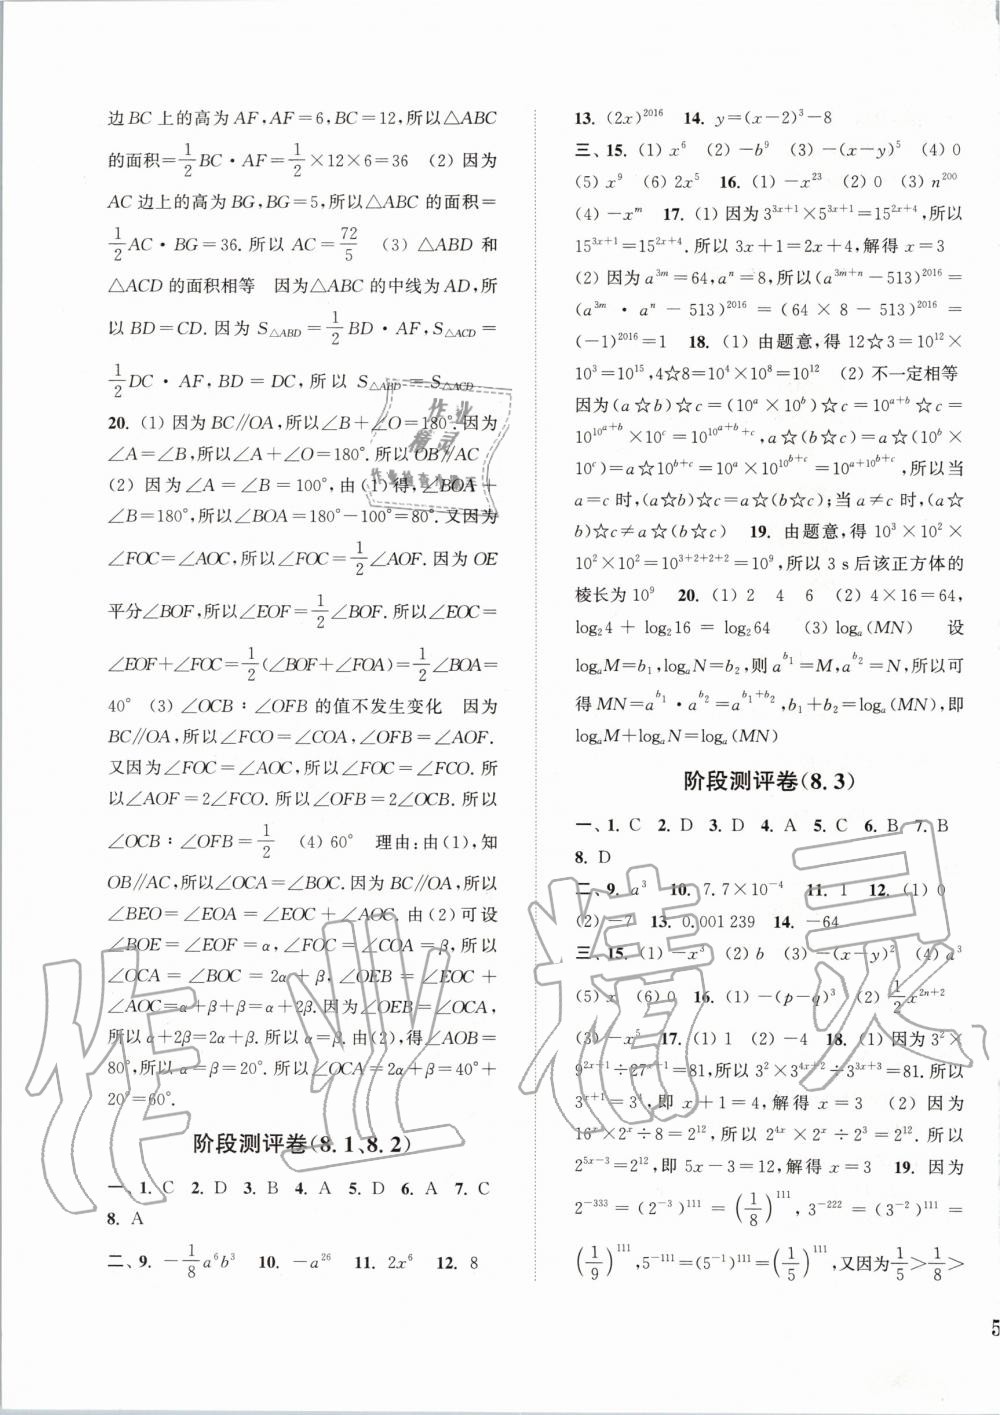 边BC上的高为AF,AF=6,BC=12,所以△ABC
的面积=1/2 BC·AF=1/2×12×6=36 (2) 因为
AC边上的高为BG,BG=5,所以△ABC的面积=
1/2 AC·BG=36.所以AC=72/5 (3) △ABD和
△ACD的面积相等 因为△ABC的中线为AD,所
以BD=CD.因为S△ABD=1/2 BD·AF,S△ACD=
1/2 DC·AF,BD=DC,所以S△ABD=S△ACD
20. (1) 因为BC∥OA,所以∠B+∠O=180°.因为
∠A=∠B,所以∠A+∠O=180°.所以OB∥AC
(2) 因为∠A=∠B=100°,由(1)得,∠BOA+
∠B=180°,所以∠BOA=180°-100°=80°.又因为
∠FOC=∠AOC,所以∠FOC=1/2∠AOF.因为OE
平分∠BOF,所以∠EOF=1/2∠BOF.所以∠EOC=
∠EOF+∠FOC=1/2(∠BOF+∠FOA)=1/2∠BOA=
40° (3) ∠OCB:∠OFB的值不发生变化 因为
BC∥OA,所以∠FCO=∠COA,∠OFB=∠AOF.
又因为∠FOC=∠AOC,所以∠FOC=∠FCO.所
以∠AOF=2∠FCO.所以∠OFB=2∠OCB.所以
∠OCB:∠OFB=1/2 (4) 60° 理由:由(1),知
OB∥AC,所以∠OCA=∠BOC.因为BC∥OA,所以
∠BEO=∠EOA=∠EOC+∠AOC.由(2)可设
∠BOE=∠EOF=α,∠FOC=∠COA=β,所以
∠OCA=∠BOC=2α+β,∠OEB=∠EOC+
∠AOC=α+β+β=α+2β.因为∠OEB=∠OCA,
所以α+2β=2α+β.所以α=β.由(2),得∠AOB=
80°,所以α=β=20°.所以∠OCA=2α+β=40°+
20°=60°.
阶段测评卷(8.1、8.2)
一、1. C 2. D 3. B 4. A 5. D 6. A 7. C
8. A
二、9. -1/8 a⁶b³ 10. -a²⁶ 11. 2x⁶ 12. 8
13. (2x)²⁰¹⁶ 14. y=(x-2)³-8
三、15. (1) x⁶ (2) -b⁹ (3) -(x-y)⁵ (4) 0
(5) x⁹ (6) 2x⁵ 16. (1) -x²³ (2) 0 (3) n²⁰⁰
(4) -x^m 17. (1) 因为3^(3x+1)×5^(3x+1)=15^(2x+4),所以
15^(3x+1)=15^(2x+4).所以3x+1=2x+4,解得x=3
(2) 因为a^(3m)=64,a^n=8,所以(a^(3m+n)-513)²⁰¹⁶=
(a^(3m)·a^n-513)²⁰¹⁶=(64×8-513)²⁰¹⁶=
(-1)²⁰¹⁶=1 18. (1) 由题意,得12☆3=10¹²×
10³=10¹⁵,4☆8=10⁴×10⁸=10¹² (2) 不一定相等
因为(a☆b)☆c=(10^a×10^b)☆c=10^(a+b)☆c=
10^(10^(a+b))×10^c=10^(10^(a+b)+c),a☆(b☆c)=a☆(10^b×
10^c)=a☆10^(b+c)=10^a×10^(10^(b+c))=10^(a+10^(b+c)),所以当
a=c时,(a☆b)☆c=a☆(b☆c);当a≠c时,(a☆
b)☆c≠a☆(b☆c) 19. 由题意,得10³×10²×
10²×10²=10^(3+2+2+2)=10⁹,所以3 s后该正方体的
棱长为10⁹ 20. (1) 2 4 6 (2) 4×16=64,
log₂4+log₂16=log₂64 (3) logₐ(MN) 设
logₐM=b₁,logₐN=b₂,则a^(b₁)=M,a^(b₂)=N,所以可
得MN=a^(b₁)·a^(b₂)=a^(b₁+b₂),b₁+b₂=logₐ(MN),即
logₐM+logₐN=logₐ(MN)
阶段测评卷(8.3)
一、1. C 2. D 3. D 4. A 5. C 6. B 7. B
8. D
二、9. a³ 10. 7.7×10⁻⁴ 11. 1 12. (1) 0
(2) -7 13. 0.001 239 14. -64
三、15. (1) -x³ (2) b (3) -(x-y)² (4) a³
(5) x (6) 0 16. (1) -(p-q)³ (2) 1/2 x^(2n+2)
(3) -x⁵ 17. (1) 1 (2) -4 18. (1) 因为3²×
9^(2x+1)÷27^(x+1)=81,所以3²×3^(4x+2)÷3^(3x+3)=81.所以
3^(x+1)=3⁴,即x+1=4,解得x=3 (2) 因为
16^x×2^x÷8=2¹²,所以2^(4x)×2^x÷2³=2¹².所以
2^(5x-3)=2¹²,即5x-3=12,解得x=3 19. 因为
2⁻³³³=(2⁻³)¹¹¹=(1/8)¹¹¹,3⁻²²²=(3⁻²)¹¹¹=
(1/9)¹¹¹,5⁻¹¹¹=(5⁻¹)¹¹¹=(1/5)¹¹¹,又因为1/5>1/8>
5
作业
精灵
作业精灵